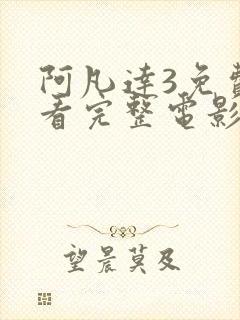 阿凡達3免費
看完整電影
望晨莫及